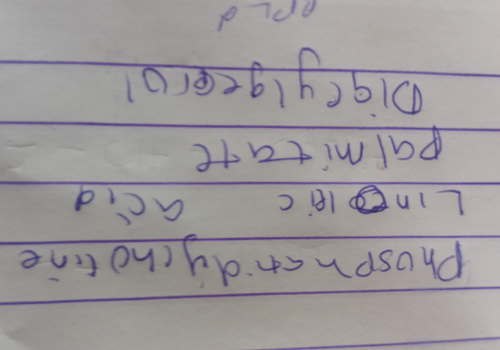 Phosphatidylcholine
Linoleic acid
palmitate
Diacylgcerol
PPLd